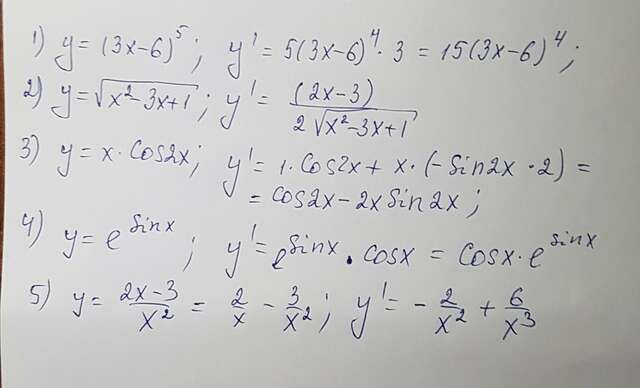 1) y = (3x-6)⁵; y' = 5(3x-6)⁴·3 = 15(3x-6)⁴;
2) y = √(x²-3x+1); y' = (2x-3)/(2√(x²-3x+1))
3) y = x·cos2x; y' = 1·cos2x + x·(-sin2x·2) =
= cos2x - 2x sin2x;
4) y = e^(sinx); y' = e^(sinx)·cosx = cosx·e^(sinx)
5) y = (2x-3)/x² = 2/x - 3/x²; y' = -2/x² + 6/x³